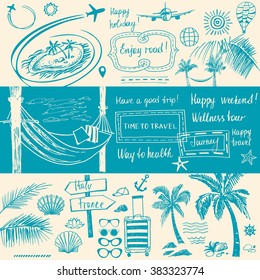 Happy
holiday!
Enjoy road!
Have a good trip!
Happy weekend!
Wellness tour
TIME TO TRAVEL
Journey
Happy
travel
Way to health
Italy
France
shutterstock
IMAGE ID: 383323774
www.shutterstock.com